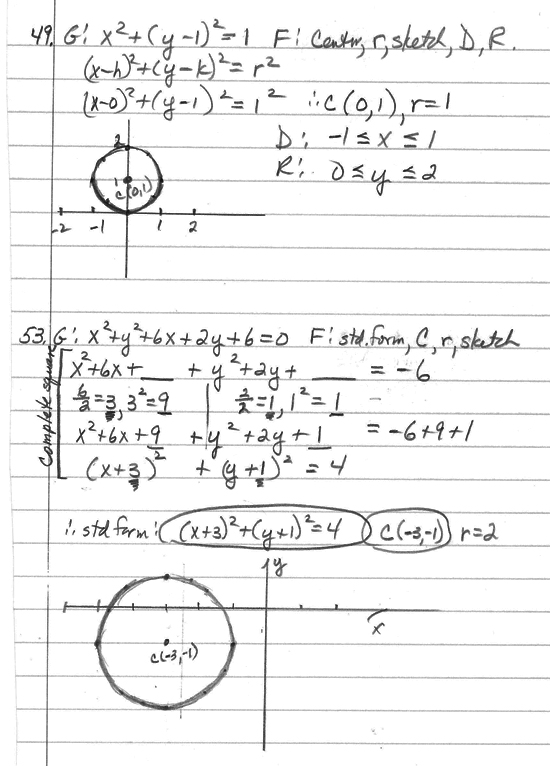 49. G: x²+(y-1)²=1 F: Center, r, sketch, D, R.
(x-h)²+(y-k)²=r²
(x-0)²+(y-1)²=1² ∴ C(0,1), r=1
D: -1≤x≤1
R: 0≤y≤2
2
1
C(0,1)
-2 -1 1 2
53. G: x²+y²+6x+2y+6=0 F: std. form, C, r, sketch
Complete square
x²+6x+__ + y²+2y+ ___ = -6
6/2=3, 3²=9 2/2=1, 1²=1
x²+6x+9 +y²+2y+1 = -6+9+1
(x+3)² + (y+1)² = 4
∴ std form: (x+3)²+(y+1)²=4 C(-3,-1) r=2
y
x
C(-3,-1)